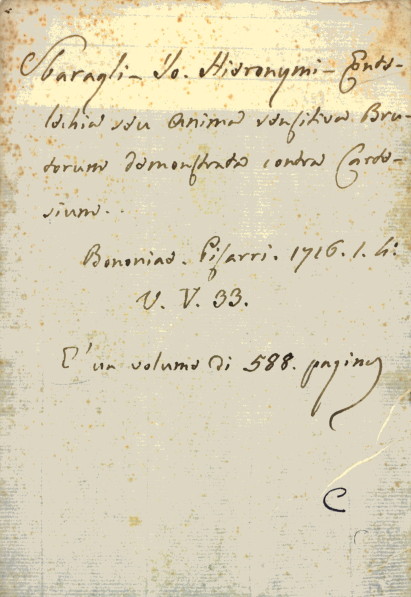 Sbaragli - Jo. Hieronymi - Ente-
lechia seu Anima sensitiva Bru-
torum demonstrata contra Carte-
sium..
Bononiae. Pisarri. 1716. 1. 4:
V. V. 33.
E' un volume di 588. pagine
C